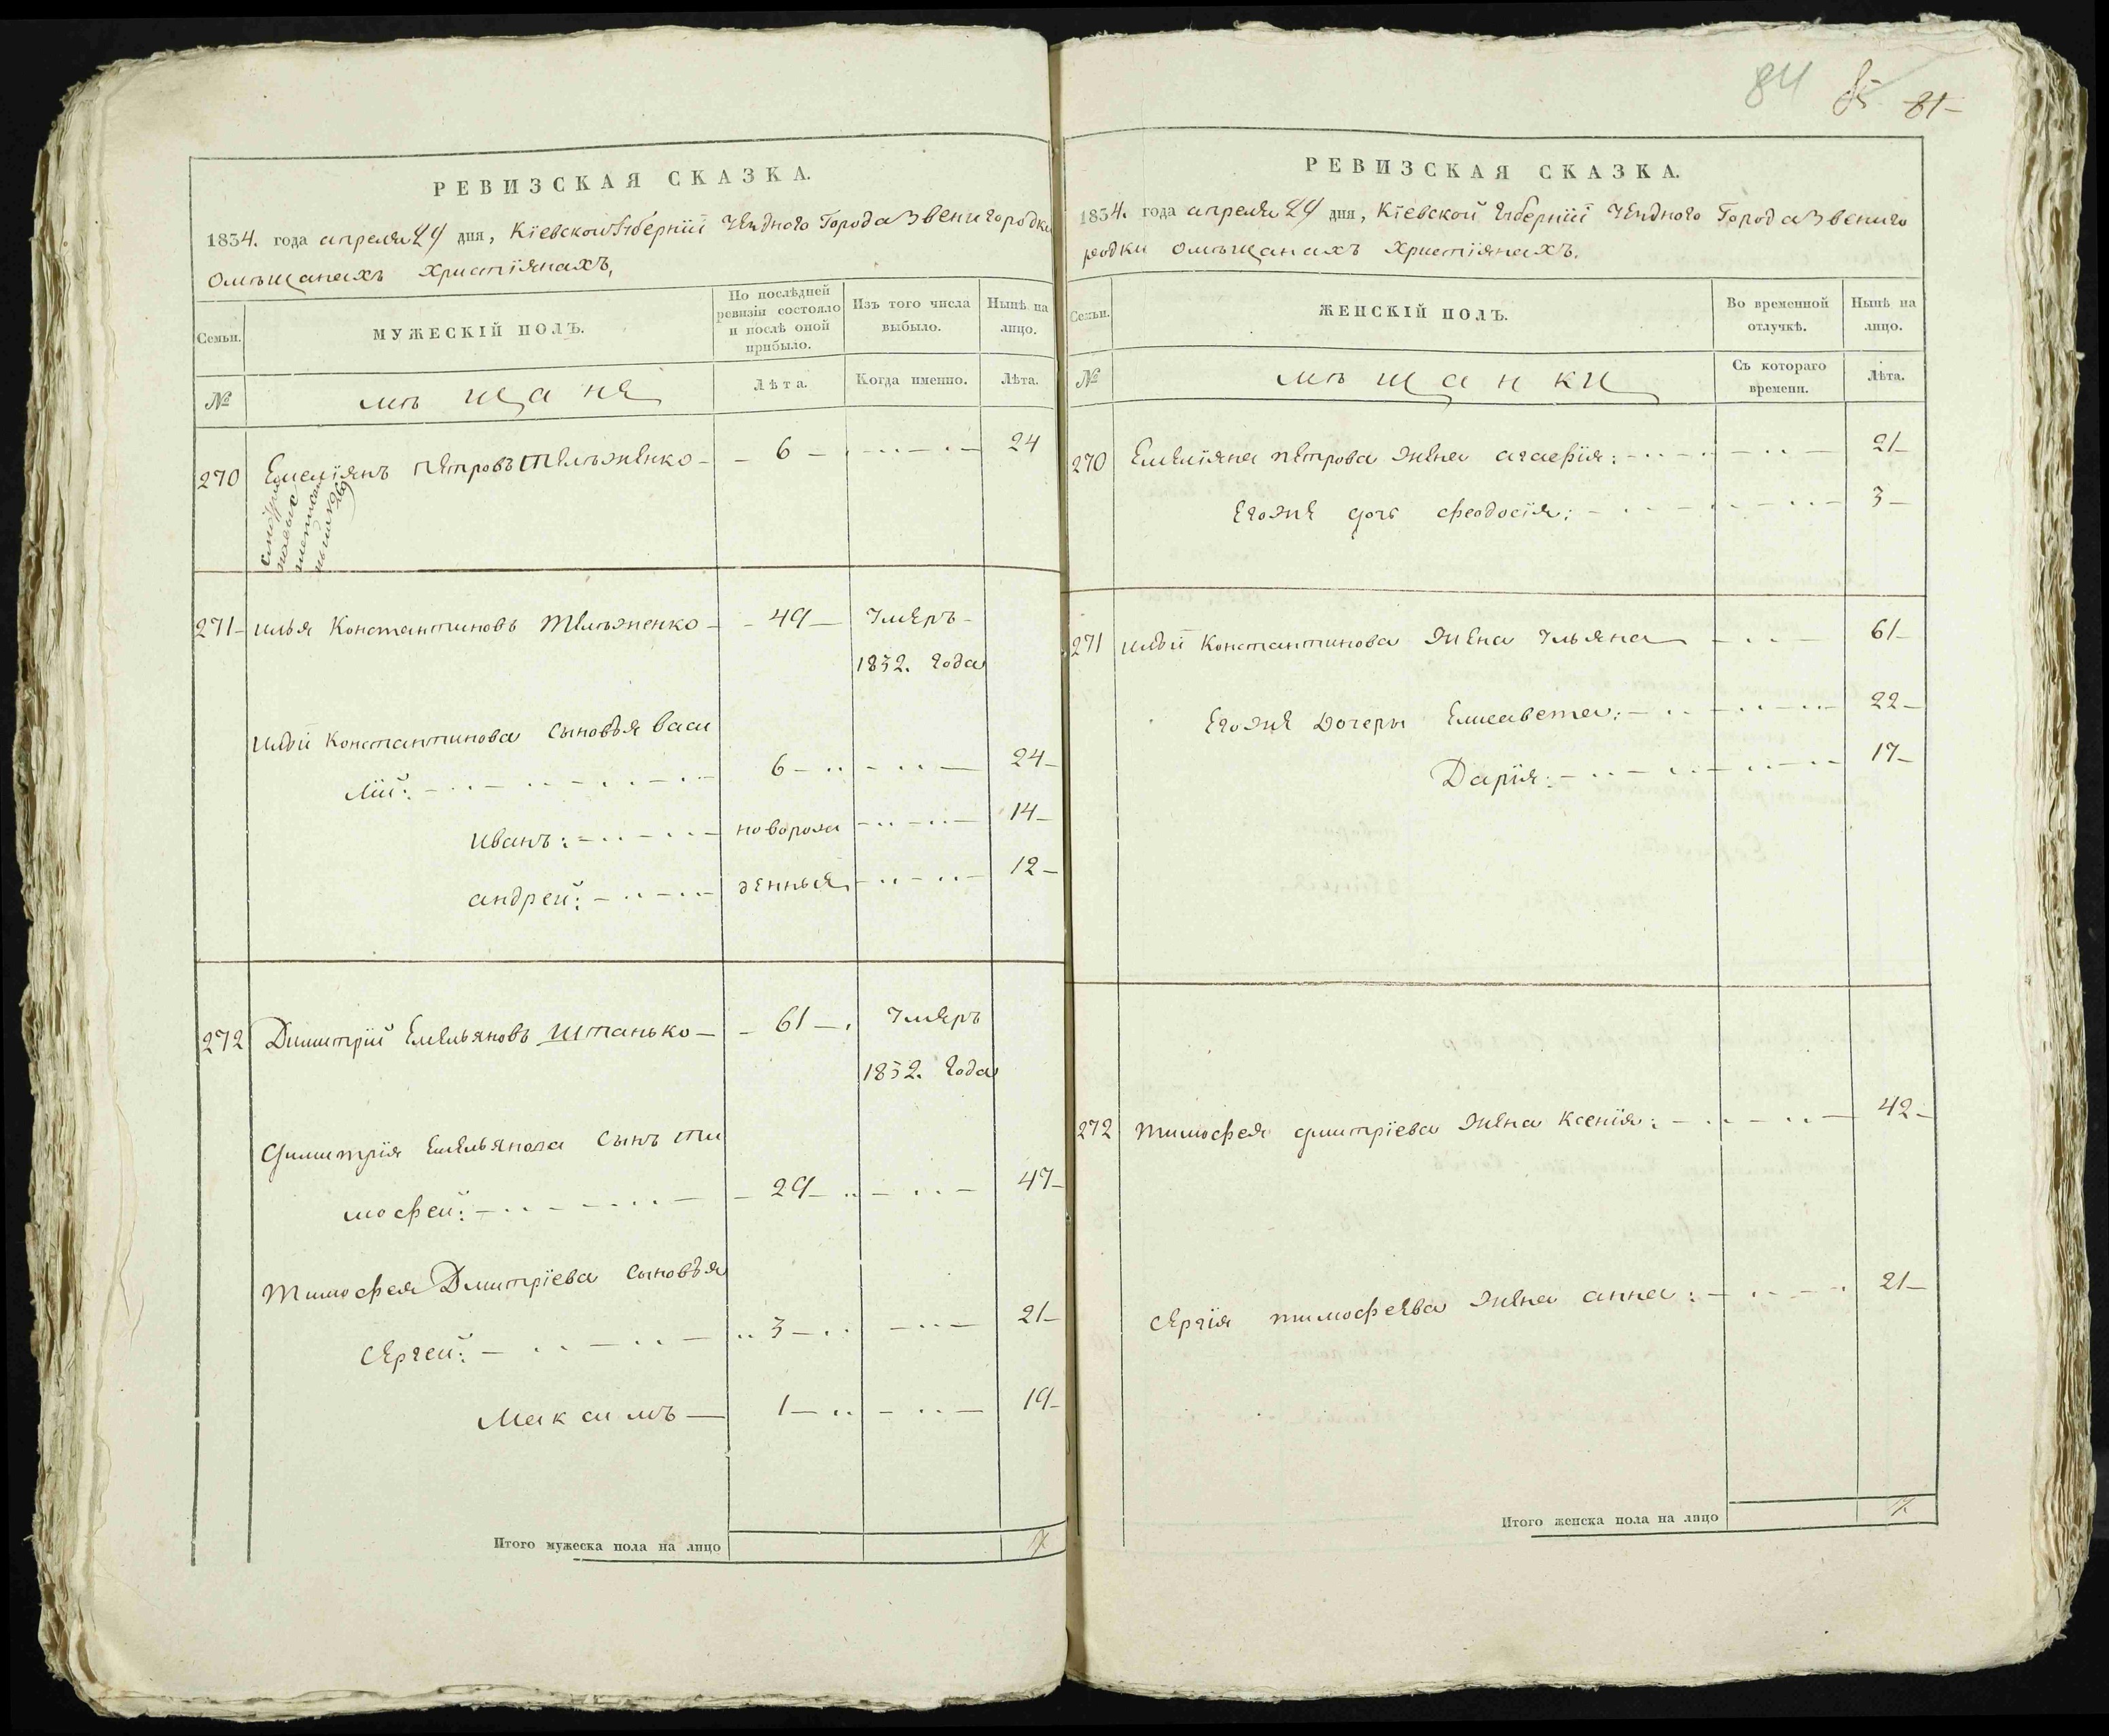 РЕВИЗСКАЯ СКАЗКА.
1834. года апреля 24 дня, Кіевской Губерніи Уездного Города Звенигородки
омѣщанахъ Христіянахъ,
Семьи.
МУЖЕСКІЙ ПОЛЪ.
По послѣдней ревизіи состояло и послѣ оной прибыло.
Изъ того числа выбыло.
Нынѣ на лицо.
№
мѣщане
Лѣта.
Когда именно.
Лѣта.
270 Емеліянъ Петровъ Тележенко 6 24
271 илья Константиновъ Тележенко 49 Умеръ
1832. Года
ильи Константинова сыновья васи
лій: 6 24
иванъ: новорож 14
андрей: денные 12
272 Димитрій Емельяновъ Штанько 61 Умеръ
1832. Года
Димитрія Емельянова сынъ ти
мофей: 29 47
Тимофея Дмитріева сыновья
Сергей: 3 21
Максимъ 1 19
Итого мужеска пола на лицо 7
84 81
РЕВИЗСКАЯ СКАЗКА.
1834. года апреля 24 дня, Кіевской Губерніи Уездного Города Звениго
родки омѣщанахъ Христіянахъ.
Семьи.
ЖЕНСКІЙ ПОЛЪ.
Во временной отлучкѣ.
Нынѣ на лицо.
№
мѣщанки
Съ котораго времени.
Лѣта.
270 Емеліяна Петрова жена агафія: 21
его же дочь феодосія: 3
271 ильи Константинова жена Ульяна 61
его же дочеры Елисавета: 22
Дарія: 17
272 Тимофея Димитріева жена Ксенія: 42
Сергія тимофеева жена анна: 21
Итого женска пола на лицо 7